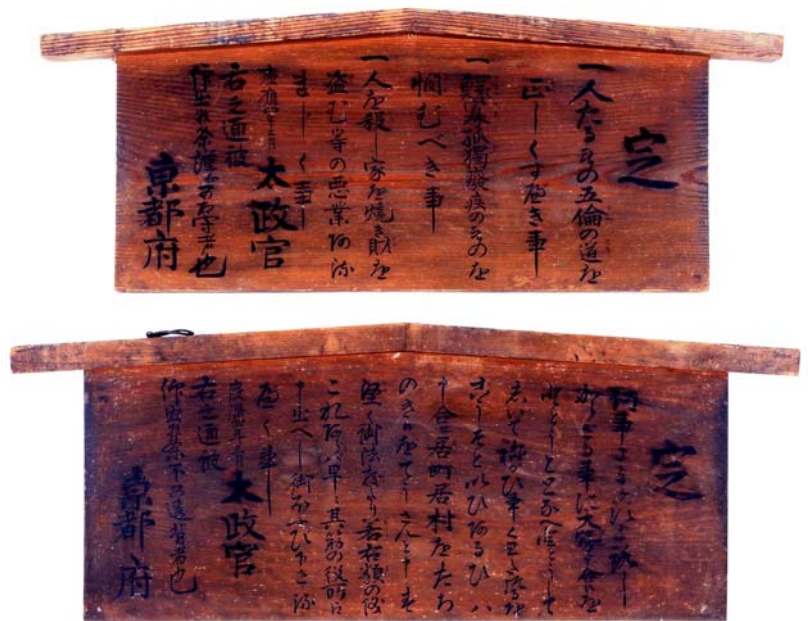 定
一人たるもの五倫の道を
正しくすべき事
一鰥寡孤獨癈疾のものを
憫むべき事
一人を殺し家を焼き財を
盗む等の悪業ある
まじく事
慶應四年三月
太政官
右之通被
仰出候条謹而可相守者也
京都府
定
何事によらすよろし
からざる事に大勢申合候を
ととうととなへととうして
しいて願ひ事くわたつるを
ごうそといひあるひハ
申合せ居町居村をたち
のき候をてうさんと申す
堅く御法度たり若右類の儀
これあらハ早々其筋の役所江
申出へし御ほふひ下さる
へく事
慶應四年三月
太政官
右之通被
仰出候条不可違背者也
京都府